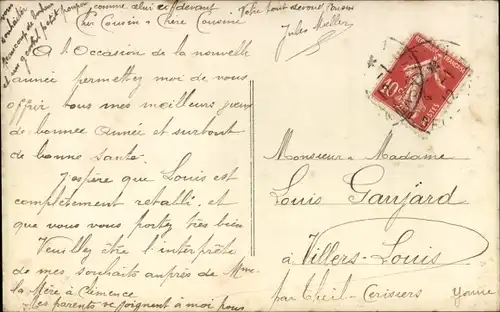 comme celui ci devant
Cher Cousin & Chère Cousine
A l'Occasion de la nouvelle
année permettez moi de vous
offrir tous mes meilleurs vœux
de bonne Année et surtout
de bonne santé.
J'espère que Louis est
complètement rétabli. et
que vous vous portez très bien
Veuillez être l'interprète
de mes souhaits auprès de Mme
la Mère à Clémence
Mes parents se joignent à moi pour
vous
souhaiter
beaucoup de bonheur
et un petit poupon
Votre tout dévoué Cousin
Jules Muller
10
POSTES
Monsieur & Madame
Louis Gaujard
à Villers-Louis
par Theil-Cerisiers Yonne